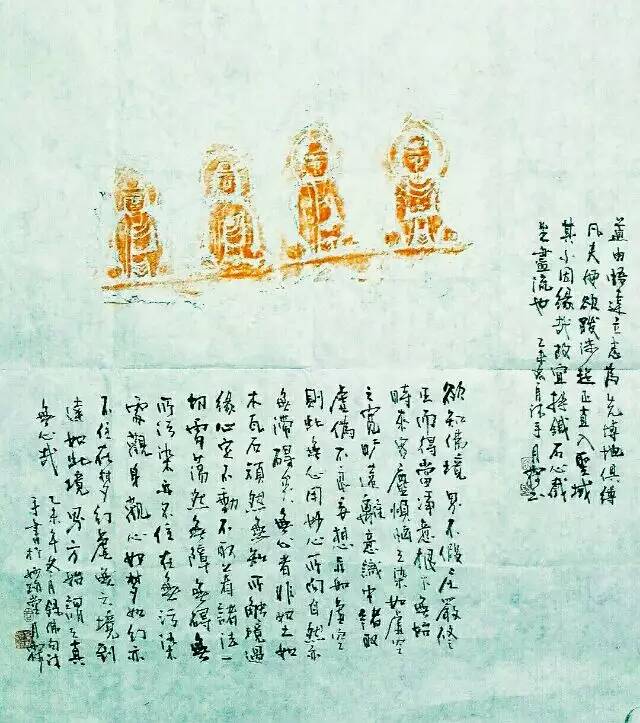 道由悟達立志為先博地俱縛
凡夫便欲踐涉超正直入聖域
其小因緣哉故宜 鐵石心截
生盡流也 乙未冬月沐手月禪
欲知佛境界不假莊嚴修
正而得當淨意根下無始
時來客塵煩惱之染如虛空
之寬曠遠離意識中諸取
虛偽不實妄想亦如虛空
則此無心用妙心所向自然亦
無滯礙矣無心者非如土如
木瓦石頑然無知所觸境遇
緣心定不動不取著諸法一
切皆蕩然無障無碍無
所污染亦不住在無污染
處觀身觀心如夢如幻亦
不住在夢幻虛無之境到
達如此境界方始謂之真
無心哉 乙未年冬月錄佛句沐
手書於 月禪